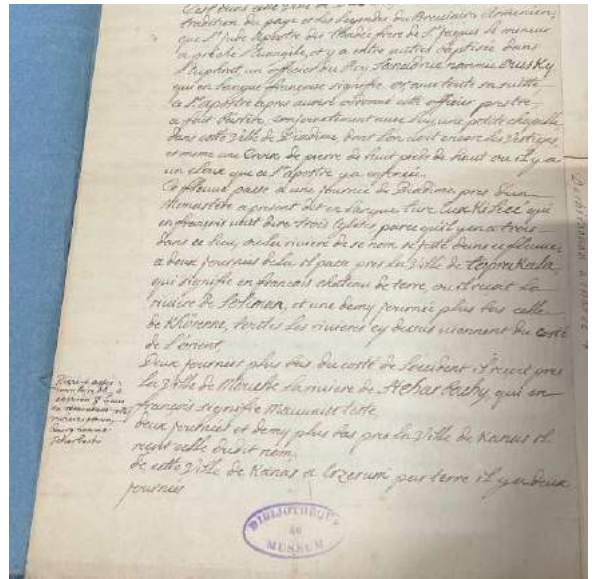 C'est dans cette ville de
tradition du pays et les legendes du Breviaire Armenien,
que St Jude Apostre dit Thadée frere de St Jaques le mineur
a preché l'Evangile, et y a entre autres baptisé dans
l'Euphrate, un officier du Roy Sanadruc nommé Ouskÿ
qui en langue françoise signifie or, avec toute sa suitte
le St Apostre apres avoir ordonné cet officier prestre
a fait construire, conjointement avec luy, une petite chapelle
dans cette ville de Diadine, dont l'on voit encore les vestiges,
et mesme une Croix de pierre de huit pieds de haut ou il y a
un cloux que ce St apostre y a enfoncé.
Ce fleuve passe a une journée de Diadine, pres d'un
Monastere a present dit en langue turc Eux Kilicé qui
en françois veut dire trois Eglises parce qu'il y en a trois
dans ce lieu, ou la riviere de ce nom se jette dans ce fleuve
a deux journées de la il passe pres la Ville de Toprakala
qui signifie en francois chateau de terre, ou il recoit la
riviere de Soliman, et une demy journée plus bas celle
de Khorenne, toutes les rivieres cy dessus viennent du costé
de l'orient.
Deux journées plus bas du costé de l'occident il recoit pres
la Ville de la riviere de Kehar Bachy, qui en
françois signifie mauvaise teste
deux journées et demy plus bas pres la Ville de Kanas il
recoit celle dudit nom,
de cette Ville de Kanas a Erzerum par terre il y a deux
journées
BIBLIOTHÈQUE
DU
MUSEUM